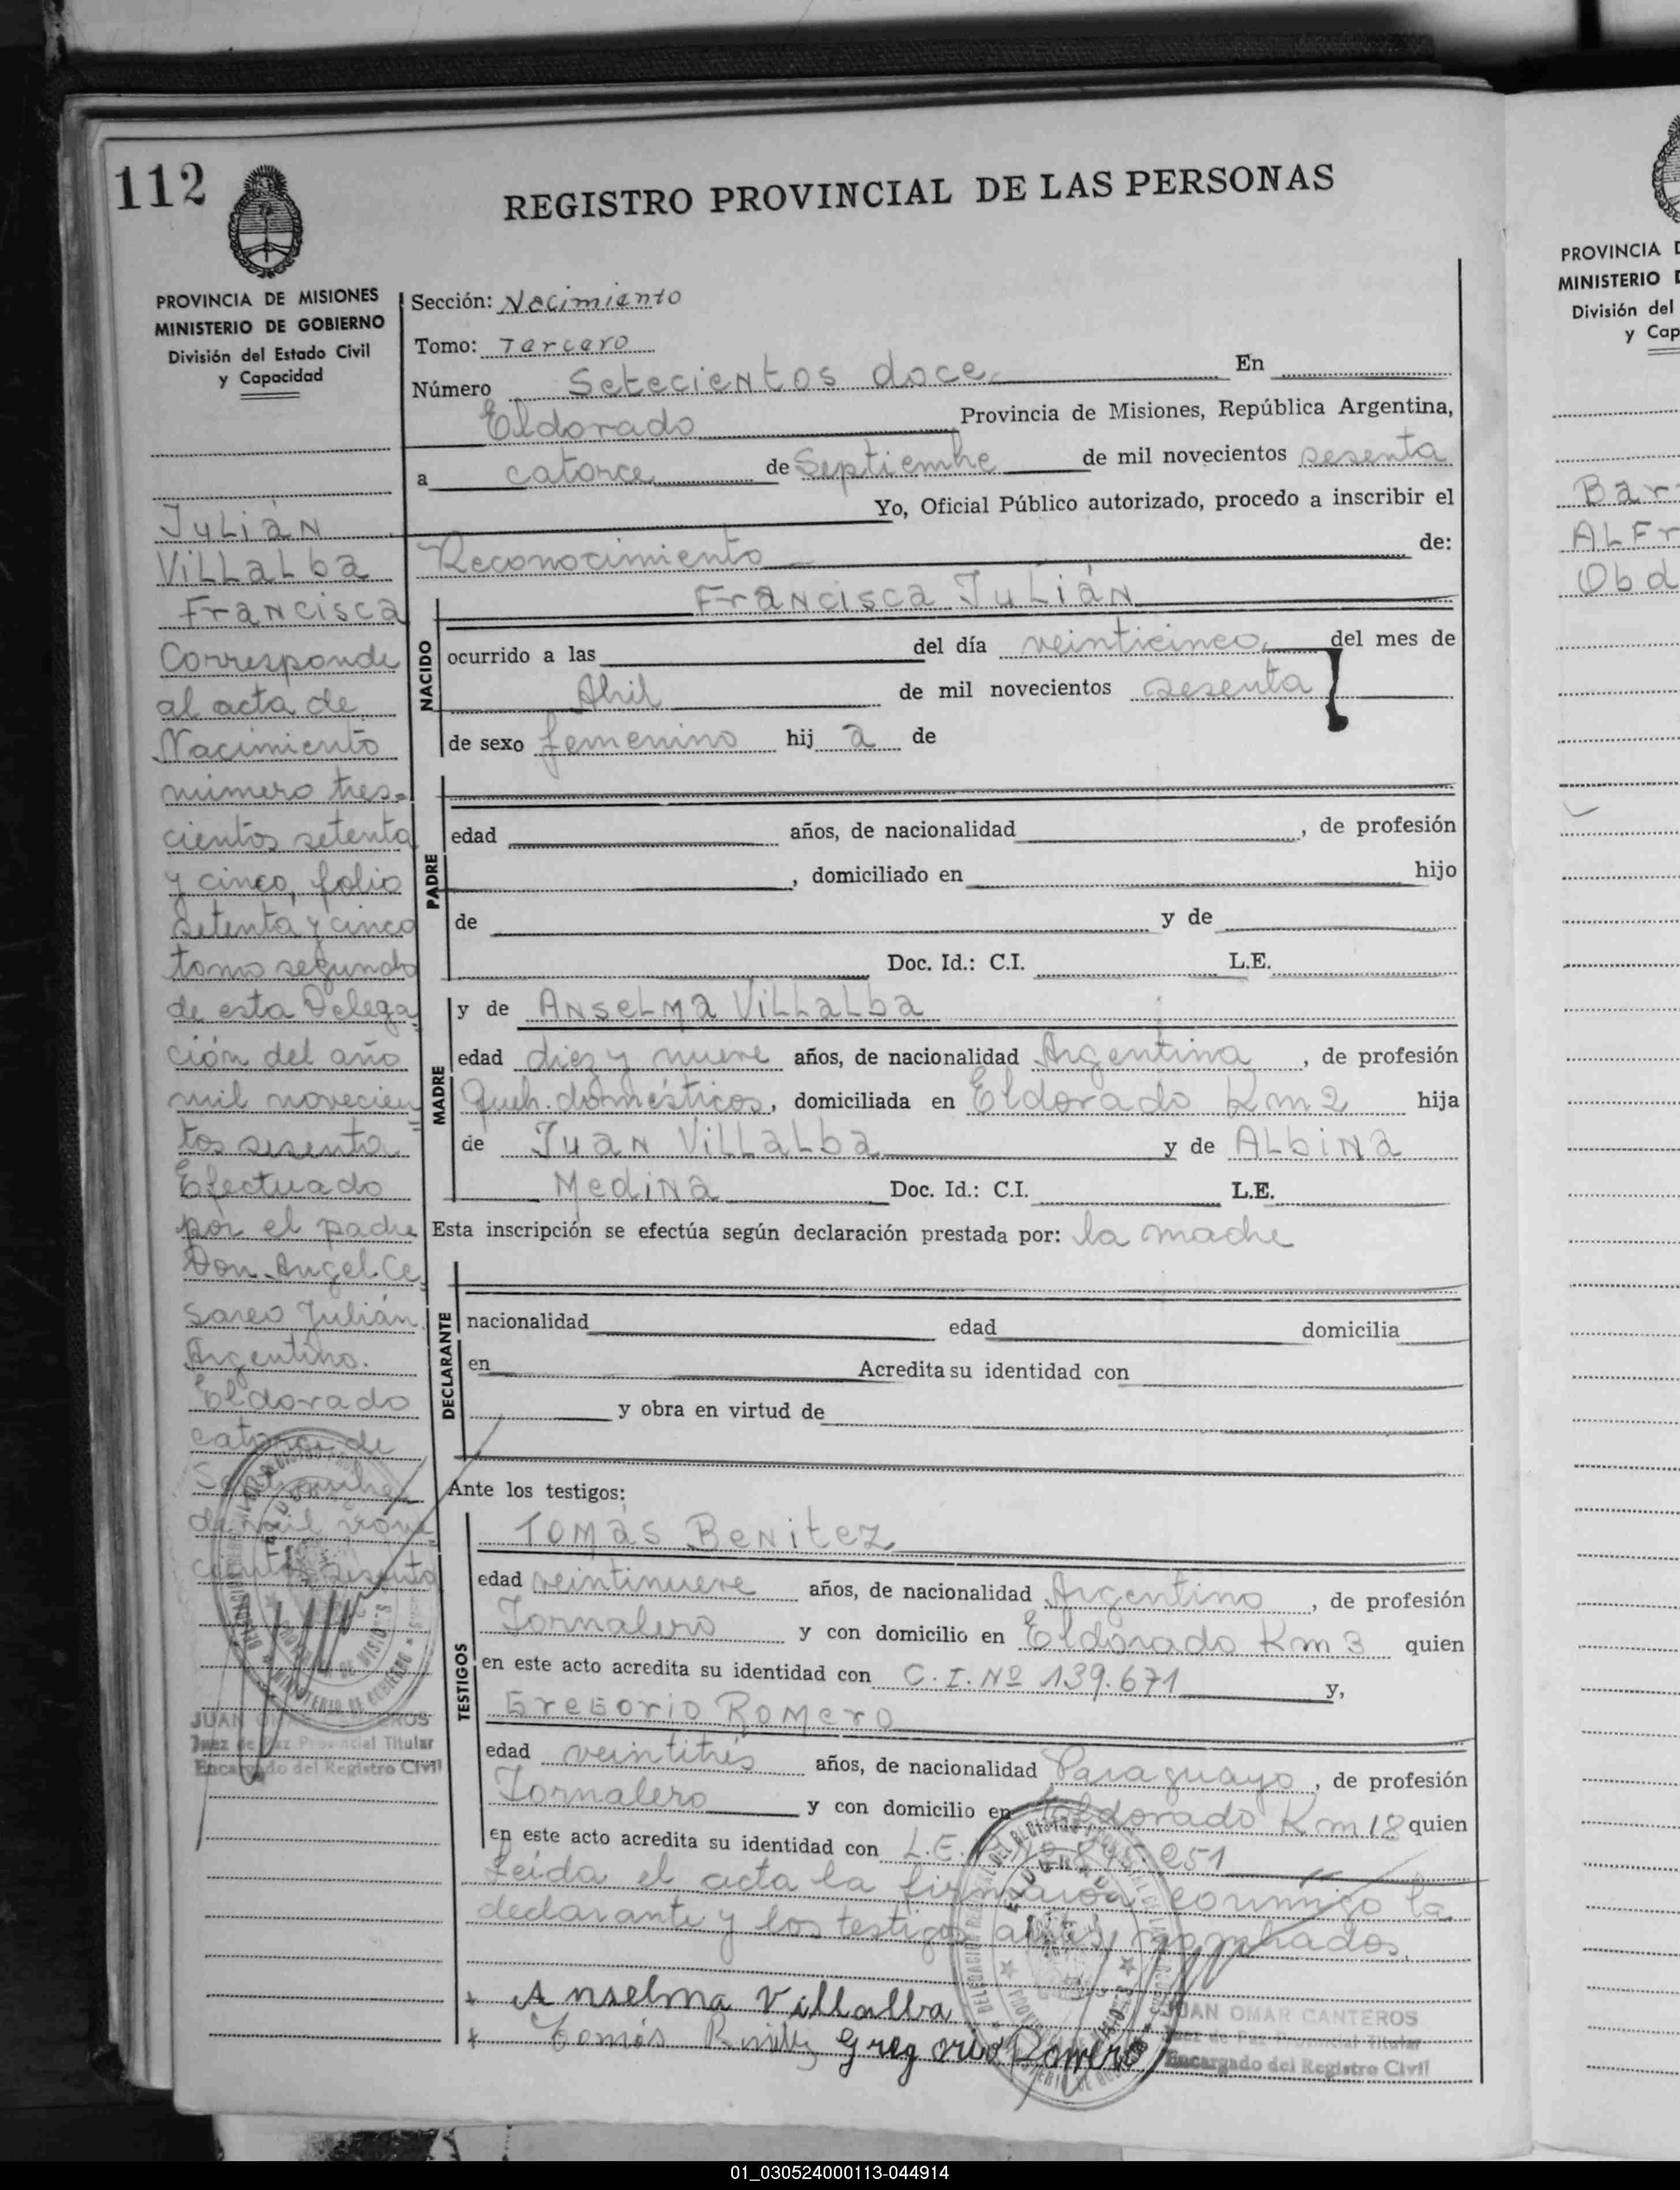 112
REGISTRO PROVINCIAL DE LAS PERSONAS
PROVINCIA DE MISIONES
MINISTERIO DE GOBIERNO
División del Estado Civil
y Capacidad
JULIÁN
VILLALBA
FRANCISCA
Corresponde
al acta de
Nacimiento
número tres=
cientos setenta
y cinco, folio
setenta y cinco
tomo segundo
de esta Delega
ción del año
mil novecien
tos sesenta
Efectuado
por el padre
Don Angel Ce
sareo Julián
Argentino.
Eldorado
catorce de
Septiembre
de mil nove
cientos sesenta
JUAN OMAR CANTEROS
Juez de Paz Provincial Titular
Encargado del Registro Civil
Sección: Nacimiento
Tomo: Tercero
Número Setecientos doce En
Eldorado Provincia de Misiones, República Argentina,
a catorce de Septiembre de mil novecientos sesenta
Yo, Oficial Público autorizado, procedo a inscribir el
Reconocimiento de:
NACIDO
FRANCISCA JULIÁN
ocurrido a las del día veinticinco del mes de
Abril de mil novecientos sesenta
de sexo femenino hij a de
PADRE
edad años, de nacionalidad , de profesión
, domiciliado en hijo
de y de
Doc. Id.: C.I. L.E.
MADRE
y de ANSELMA VILLALBA
edad diez y nueve años, de nacionalidad Argentina , de profesión
Queh. domésticos, domiciliada en Eldorado Km 2 hija
de JUAN VILLALBA y de ALBINA
MEDINA Doc. Id.: C.I. L.E.
Esta inscripción se efectúa según declaración prestada por: la madre
DECLARANTE
nacionalidad edad domicilia
en Acredita su identidad con
y obra en virtud de
Ante los testigos:
TESTIGOS
TOMÁS BENITEZ
edad veintinueve años, de nacionalidad Argentino , de profesión
Jornalero y con domicilio en Eldorado Km 3 quien
en este acto acredita su identidad con C.I. Nº 139.671 y,
GREGORIO ROMERO
edad veintitrés años, de nacionalidad Paraguayo , de profesión
Jornalero y con domicilio en Eldorado Km 18 quien
en este acto acredita su identidad con L.E.
Leída el acta la firmaron conmigo la
declarante y los testigos antes nombrados.
Anselma Villalba
Tomás Benitez Gregorio Romero
JUAN OMAR CANTEROS
Juez de Paz Provincial Titular
Encargado del Registro Civil
PROVINCIA D
MINISTERIO D
División del
y Cap
Bar
ALFr
Obd
01_030524000113-044914